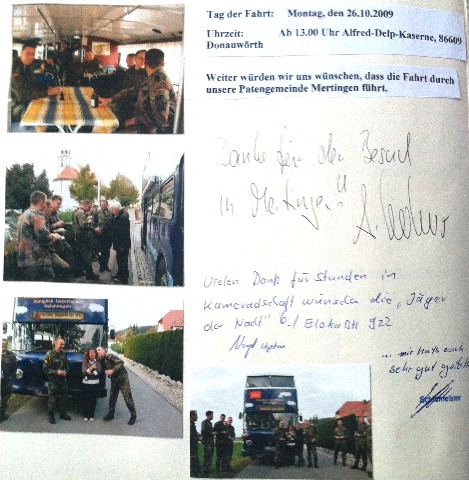 Tag der Fahrt: Montag, den 26.10.2009
Uhrzeit: Ab 13.00 Uhr Alfred-Delp-Kaserne, 86609
Donauwörth
Weiter würden wir uns wünschen, dass die Fahrt durch
unsere Patengemeinde Mertingen führt.
Danke für den Besuch
in Mertingen!!
Vielen Dank für Stunden in
Kameradschaft wünschen die „Jäger
der Nacht" 6./ EloKaBtl 922
... mir hat's auch
sehr gut